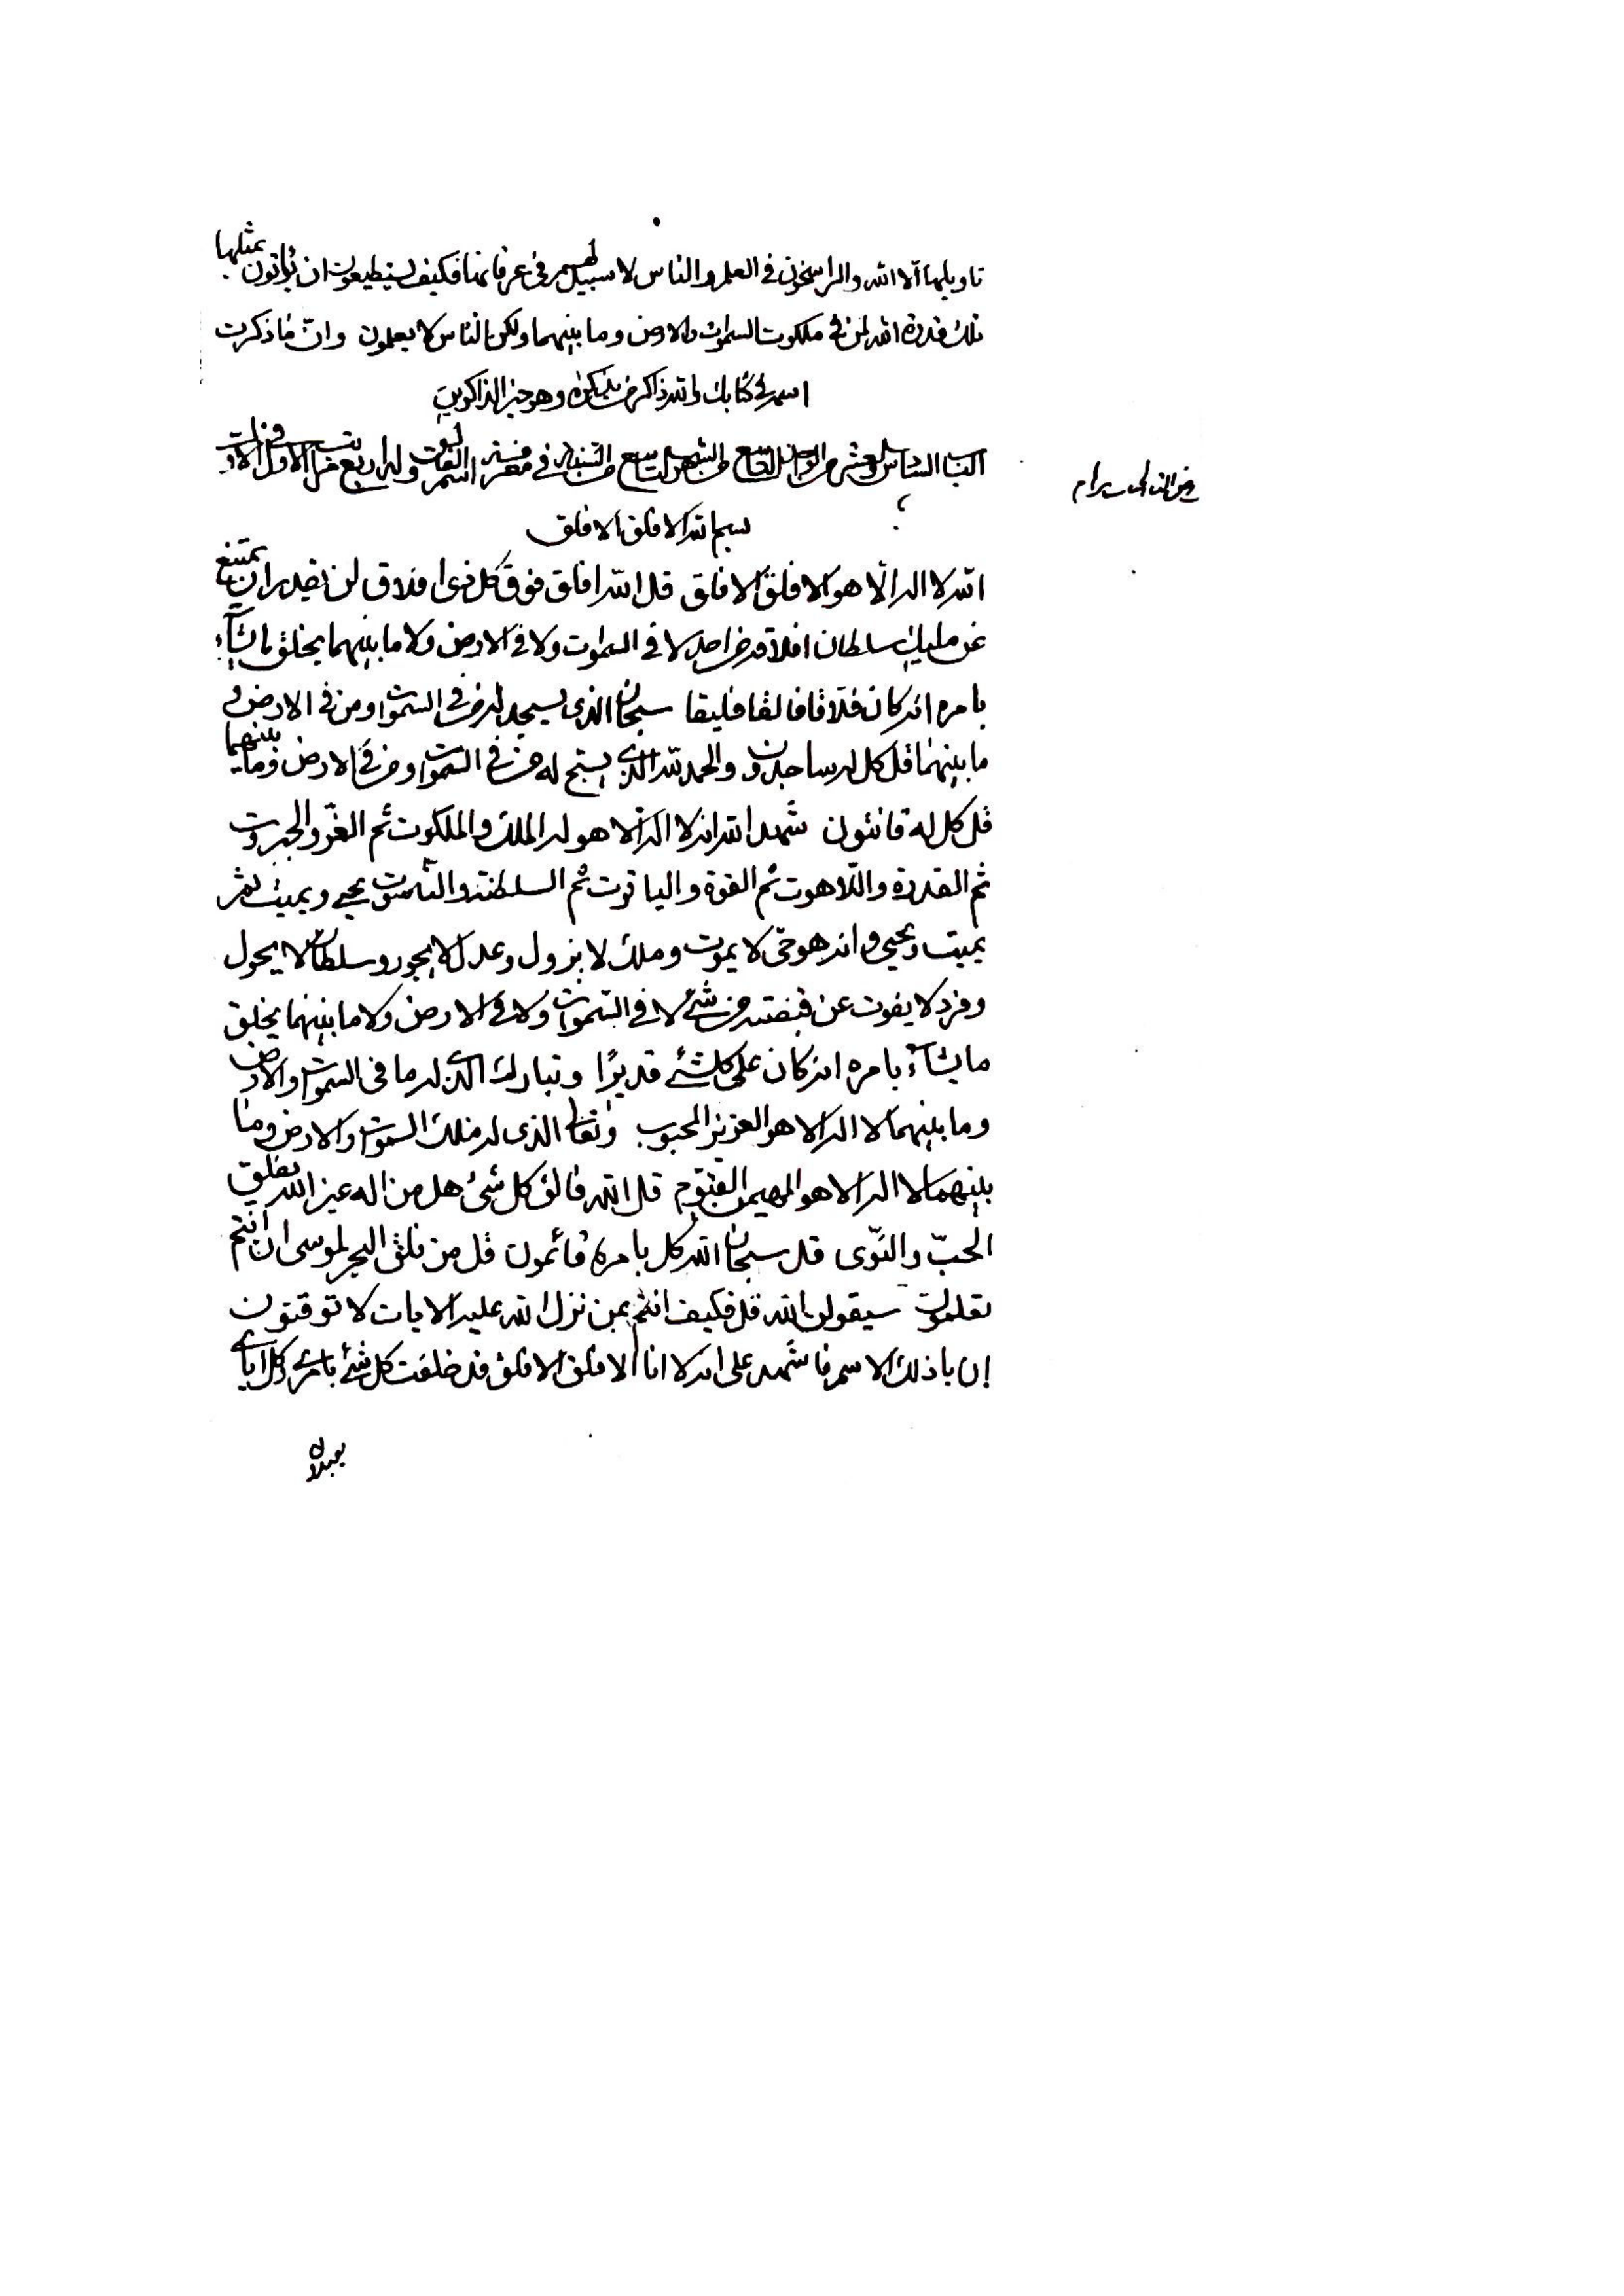 تاويلها الا الله والراسخون في العلم والناس لا سبيل لهم في عرفانها فكيف يستطيعون ان ياتون بمثلها
تلك قدرة الله لمن في ملكوت السموات والارض وما بينهما ولكن الناس لا يعلمون وان ما ذكرت
اسمه في كتابك والله ذاكر من يذكره وهو خير الذاكرين
الباب السادس والعشر من الواحد التاسع من الشهر التاسع من السنة في معرفة اسم الفالق وله اربع مراتب الاول في الاول
بسم الله الافلق الافلق
الله لا اله الا هو الافلق الافلق قل الله افلق فوق كل ذى افلاق لن يقدر ان يمتنع
عن مليك سلطان افلاقه من احد لا في السموات ولا في الارض ولا ما بينهما يخلق ما يشآء
بامره انه كان فلاقا فالقا فليقا سبحان الذى يسجد له من في السموات ومن في الارض و
ما بينهما قل كل له ساجدون والحمد لله الذى يسبح له من في السموات ومن في الارض وما بينهما
قل كل له قانتون شهد الله انه لا اله الا هو له الملك والملكوت ثم العز والجبروت
ثم القدرة واللاهوت ثم القوة والياقوت ثم السلطنة والناسوت يحيى ويميت ثم
يميت ويحيى وانه هو حى لا يموت وملك لا يزول وعدل لا يجور وسلطان لا يحول
وفرد لا يفوت عن قبضته من شئ لا في السموات ولا في الارض ولا ما بينهما يخلق
ما يشآء بامره انه كان على كلشئ قديرًا وتبارك الذى له ما فى السموات والارض
وما بينهما لا اله الا هو العزيز المحبوب وتعالى الذى له ملك السموات والارض وما
بينهما لا اله الا هو المهيمن القيوم قل الله فالق كل شئ هل من اله غير الله يفلق
الحبّ والنّوى قل سبحان الله كل بامره قائمون قل من فلق البحر لموسى ان انتم
تعلمون سيقولن الله قل فكيف انتم بمن نزل الله عليه الايات لا توقنون
ان يا ذلك الاسم فاشهد على انه لا انا الا الافلق الافلق قد خلقت كل شئ بامرى وكل اياى
يعبدون